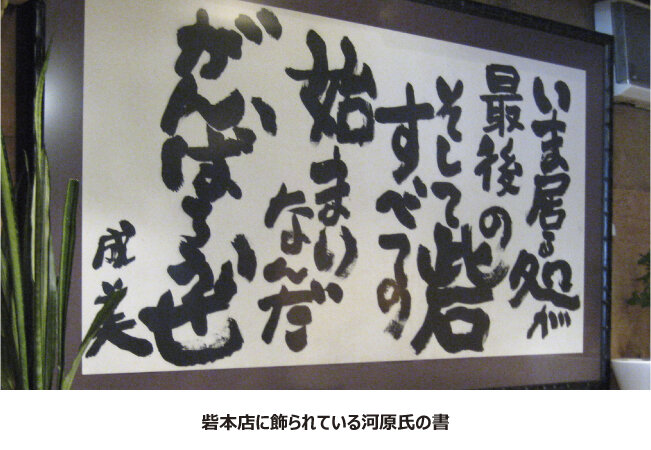 いま居る処が
最後の
そして砦
すべての
始まりなんだ
がんばろうぜ
成美
砦本店に飾られている河原氏の書